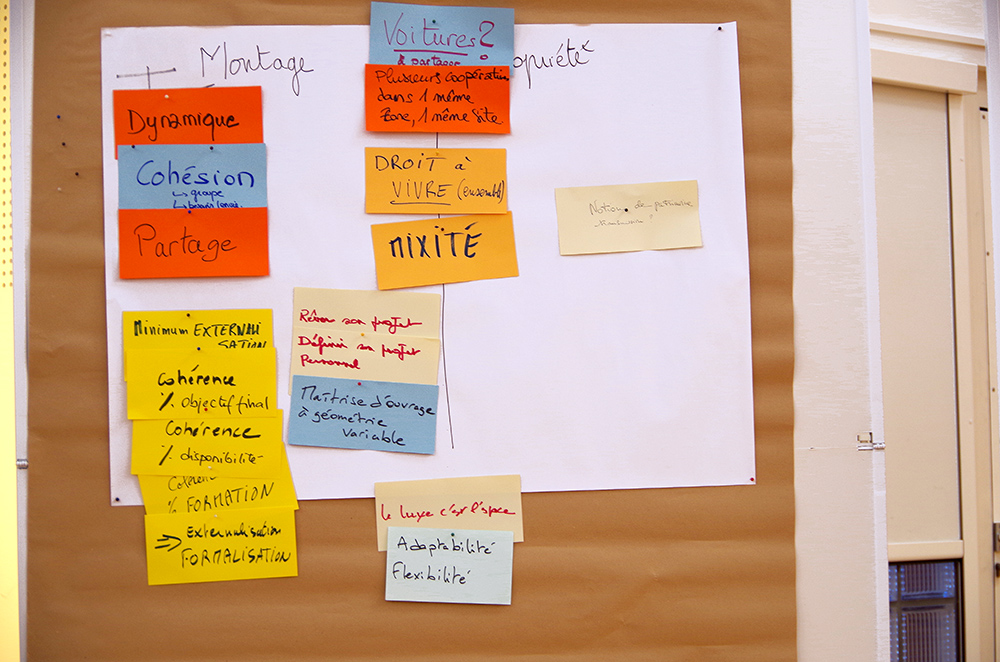 + Montage
opriété
Dynamique
Cohésion
↳ groupe
↳
Partage
Minimum EXTERNALI
SATION
Cohérence
٪ objectif final
Cohérence
٪ disponibilité
Cohéren
% FORMATION
⇒ Externalisation
FORMALISATION
Voitures?
à partager
Plusieurs coopérative
dans 1 même
Zone, 1 même site
DROIT à
VIVRE (ensemble)
MIXITÉ
Rêver son projet
Définir son projet
Personnel
Maîtrise d'ouvrage
à géométrie
variable
le luxe c'est l'espace
Adaptabilité
Flexibilité
Notion